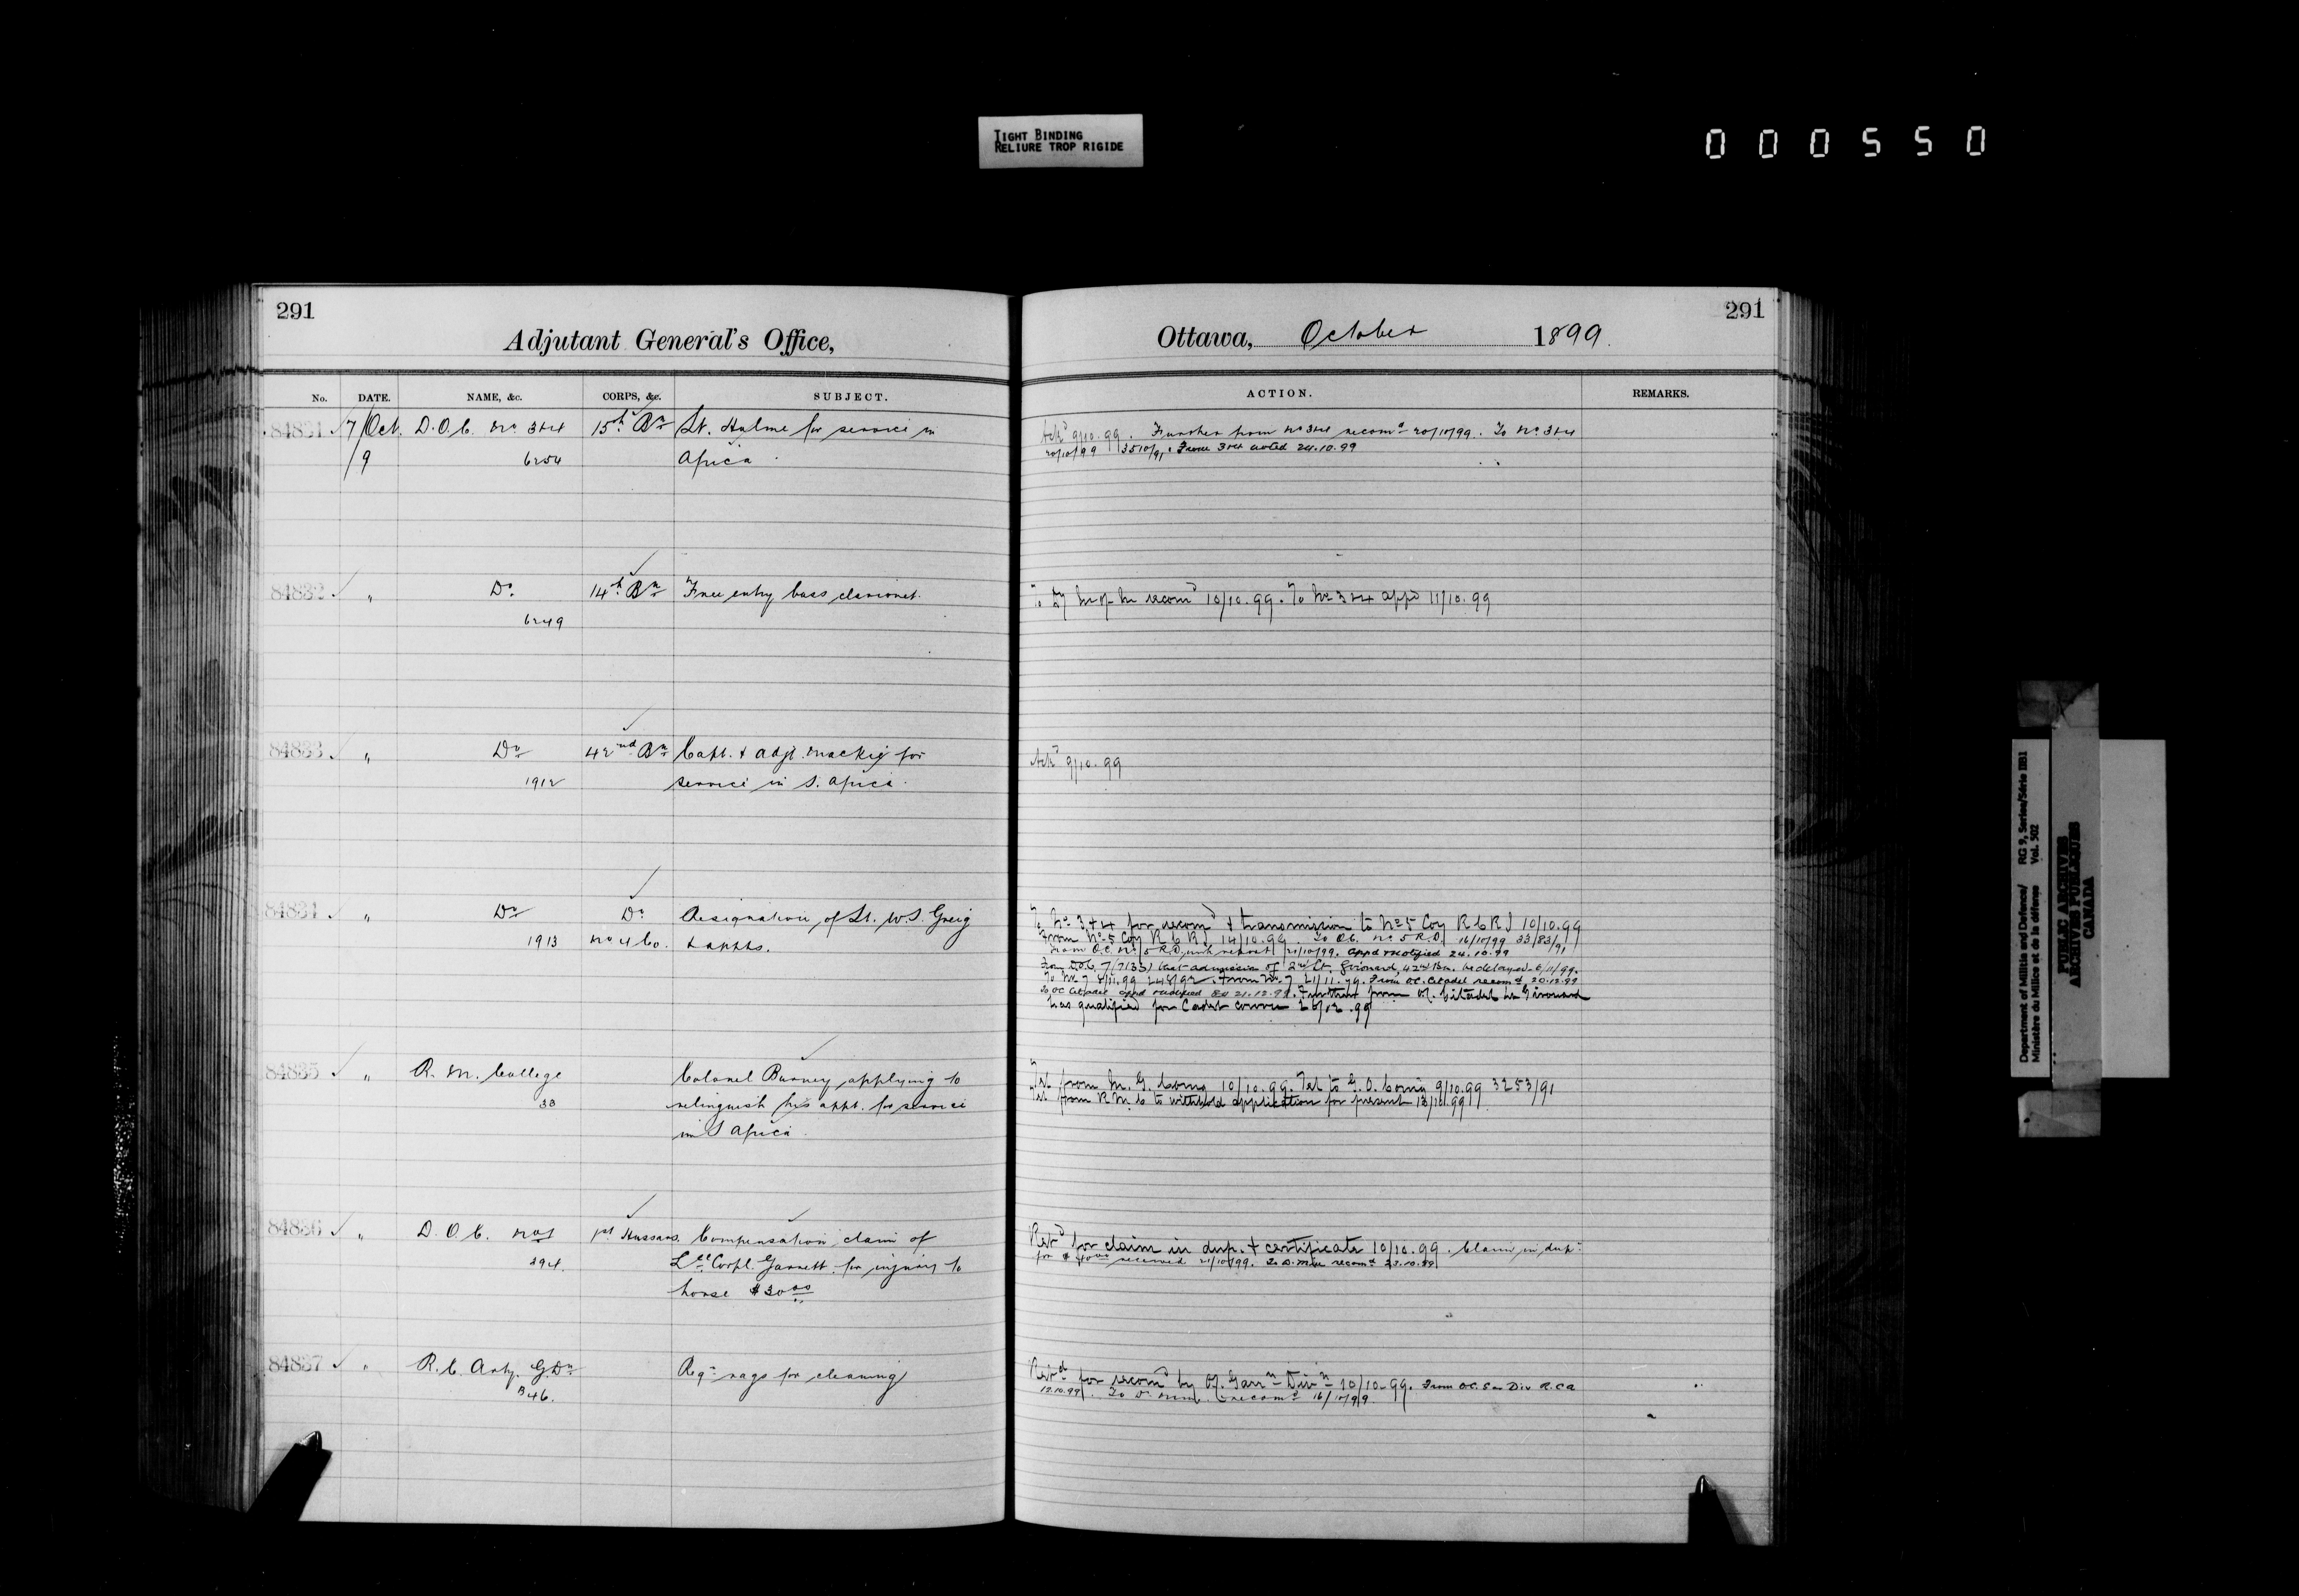 TIGHT BINDING
RELIURE TROP RIGIDE
000550
291
Adjutant General's Office,
No. DATE. NAME, &c. CORPS, &c. SUBJECT.
84831 7/Oct. D.O.C. No 3&4 15th Bn Lt. Hulme for service in
/9 6254 Africa
84832 " Do 14th Bn Free entry bass clarionet.
6249
84833 " Do 42nd Bn Capt. & Adjt. Mackie for
1912 service in S. Africa.
84834 " Do Do Resignation of Lt. W.S. Greig
1913 No 4 Co. & appts.
84835 " R. M. College Colonel Burney applying to
33 relinquish his appt. for service
in S Africa.
84836 " D. O. C. No 1 1st Hussars. Compensation claim of
394. Lce Corpl. Garnett for injury to
horse $30.00
84837 " R. C. Arty. G.Dn Reqn rags for cleaning
B46.
291
Ottawa, October 1899.
ACTION. REMARKS.
Ackd 9/10.99. Further from No 3&4 recomd 20/10/99. To No. 3&4
20/10/99 3510/91. From 3&4 noted 24.10.99
To M of M recomd 10/10.99. To No 3&4 appd 11/10.99
Ackd 9/10.99
To No 3&4 for recomd & transmission to No 5 Coy R C R I 10/10.99
From No 5 Coy R C R I 14/10.99. To O.C. No. 5 R.D. 16/10/99 33/83/91
From O.C. No 5 R.D. with report 21/10/99. appd & notified 24.10.99
From D.O.C. 7 (7133) that admission of 2nd Lt. Girouard, 42nd Bn. be delayed 6/11/99.
To No. 7 8/11.99. From No. 7 21/11.99. From O.C. Citadel recomd 20.12.99
To OC Citadel appd & notified 21.12.99. Further from Of. Citadel Lt Girouard
has qualified for Cadet course 26/12.99
Tel from M. G. Comg 10/10.99. Tel to G. O. Comg 9/10.99 3253/91
Tel from R M C to withhold application for present 13/10.99
Retd for claim in dup. & certificate 10/10.99. Claim in dup.
for $ received 21/10/99. recomd 23.10.99
Retd for recomd by Of. Garrn Divn 10/10.99. From O.C. Div R.C.A
12.10.99. recomd 16/10/99.
Department of Militia and Defence/ RG 9, Series/Série IIB1
Ministère du Milice et de la défense Vol. 502
PUBLIC ARCHIVES
ARCHIVES PUBLIQUES
CANADA